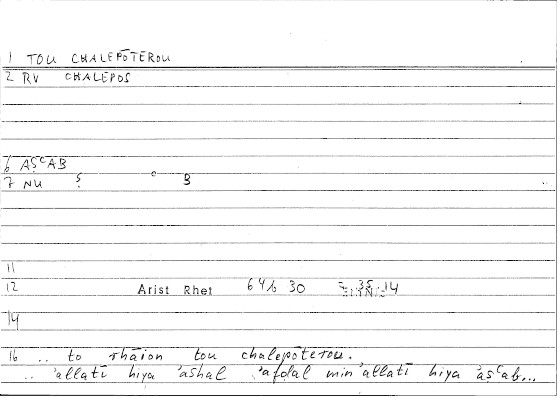 1 TOU CHALEPŌTEROU
2 RV CHALEPOS
6 AṢʿAB
7 NU Ṣ ʿ B
11
12 Arist Rhet 30 35 14
14
16 .. to rhāion tou chalepōterou.
.. 'allatī hiya 'ashal 'afḍal min 'allatī hiya 'aṣʿab...